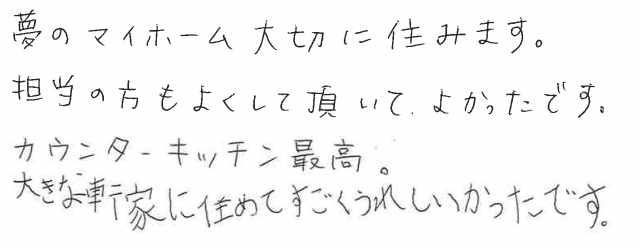 夢のマイホーム大切に住みます。
担当の方もよくして頂いて、よかったです。
カウンターキッチン最高。
大きな軒家に住めてすごくうれしいかったです。